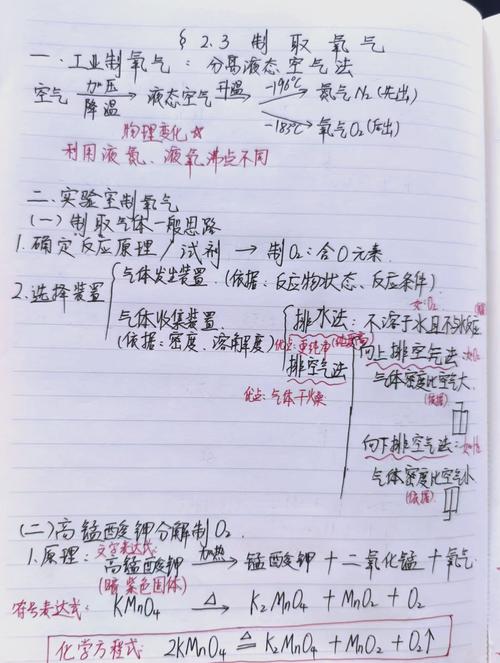 § 2.3 制取氧气
一、工业制氧气：分离液态空气法
空气 加压 降温 → 液态空气 升温 → -196℃ 氮气N₂(先出)
-183℃ 氧气O₂(后出)
物理变化 ☆
利用液氮、液氧沸点不同
二、实验室制氧气
(一)制取气体一般思路
1.确定反应原理/试剂 → 制O₂:含O元素
2.选择装置
气体发生装置.(依据:反应物状态、反应条件)
气体收集装置.
(依据:密度、溶解度)
如:O₂
排水法: 不溶于水且不与水反应
优点:更纯净
排空气法
优点:气体干燥
向上排空气法:如O₂
气体密度比空气大.
(依据)
向下排空气法:
气体密度比空气小
(依据)
(二)高锰酸钾分解制O₂.
1.原理: 文字表达式:
高锰酸钾 加热 → 锰酸钾 + 二氧化锰 + 氧气
(暗紫色固体)
符号表达式: KMnO₄ △ → K₂MnO₄ + MnO₂ + O₂
化学方程式: 2KMnO₄ △ = K₂MnO₄ + MnO₂ + O₂↑